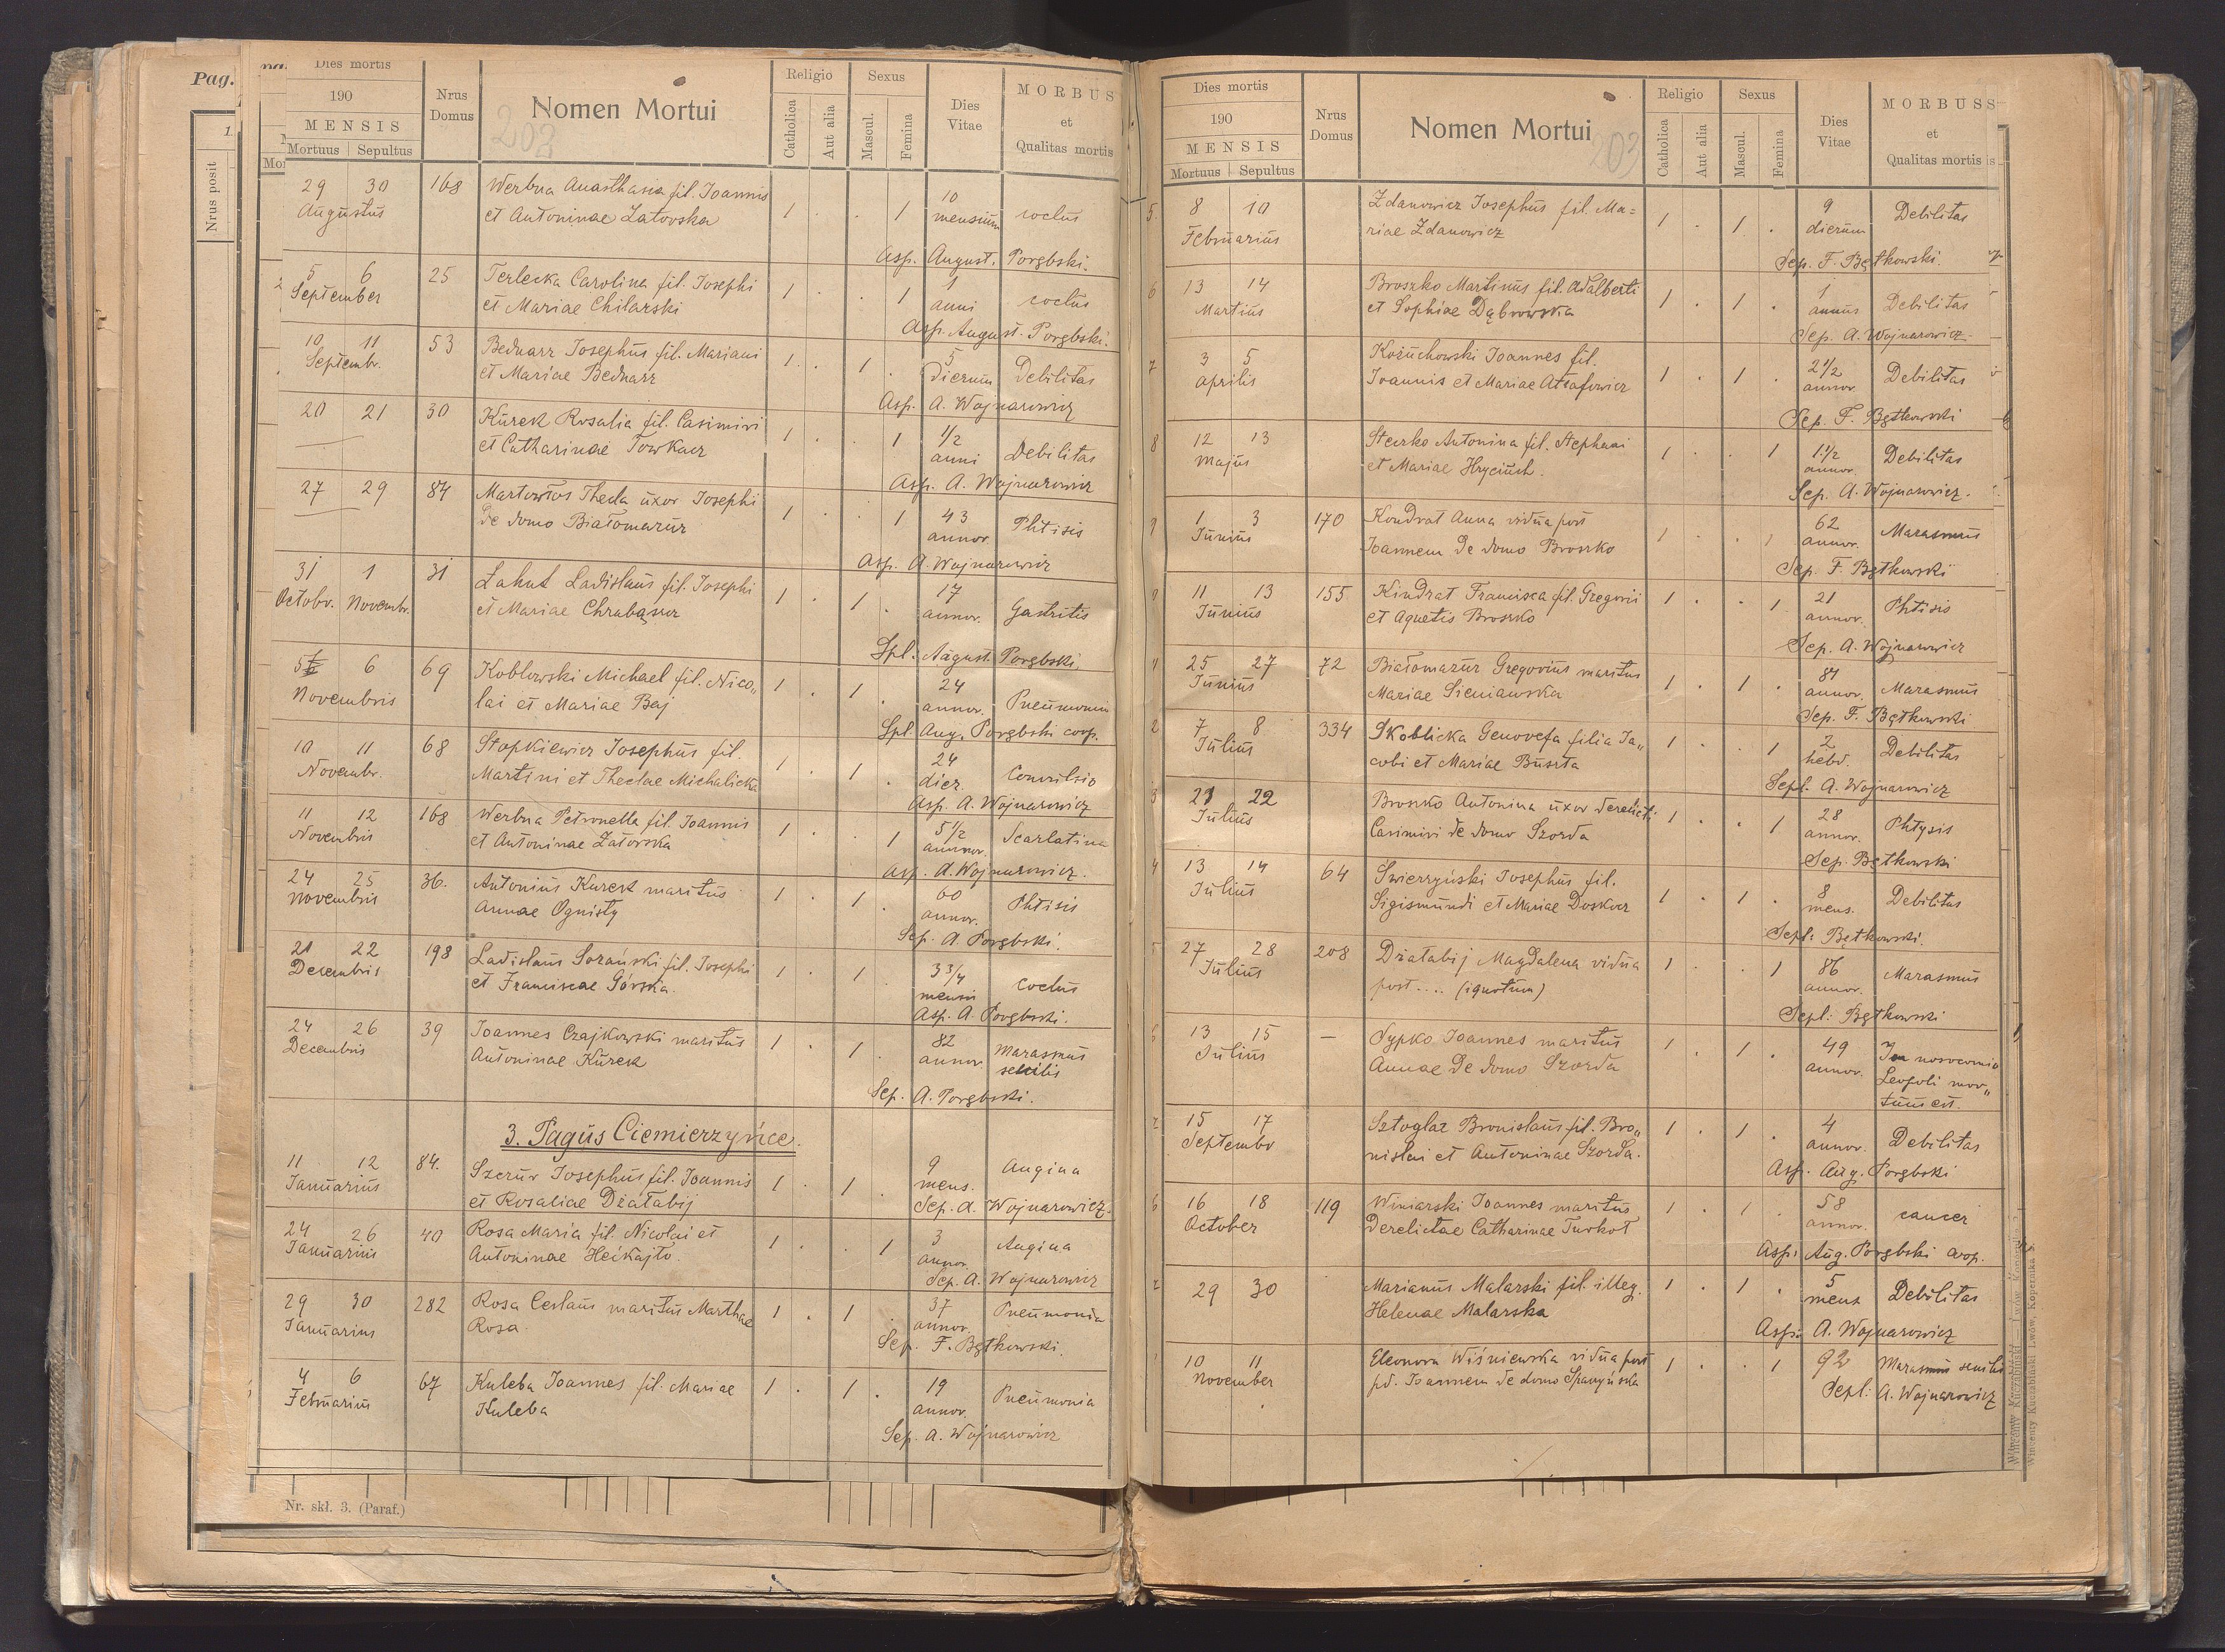 Pag.
Nrus posit
Dies mortis
190
MENSIS
Mortuus Sepultus
Nrus Domus
Nomen Mortui
202
Religio
Catholica
Aut alia
Sexus
Mascul.
Femina
Dies Vitae
MORBUS
et
Qualitas mortis
29 30 168 Werbna Anasthasia fil. Joannis
Augustus et Antoninae Zatorska 1 . . 1 10 mensium coclus
Asp. August. Porębski.
5 6 25 Terlecka Carolina fil. Josephi
September et Mariae Chilarski 1 . . 1 1 anni coclus
Asp. August. Porębski.
10 11 53 Bednarz Josephus fil. Mariani
Septembr. et Mariae Bednarz 1 . 1 . 5 dierum Debilitas
Asp. A. Wojnarowicz
20 21 30 Kurek Rosalia fil. Casimiri
et Catharinae Towkacz 1 . . 1 1/2 anni Debilitas
Asp. A. Wojnarowicz
27 29 84 Martowłos Thecla uxor Josephi
de domo Białomazur 1 . . 1 43 annor. Phtisis
Asp. A. Wojnarowicz
31 1 31 Łahut Ladislaus fil. Josephi
Octobr. Novembr. et Mariae Chrabąszcz 1 . 1 . 17 annor. Gastritis
Spl. August. Porębski.
5 6 69 Koblowski Michael fil. Nico„
Novembris lai et Mariae Baj 1 . 1 . 24 annor. Pneumonia
Spl. Aug. Porębski coop.
10 11 68 Stopkiewicz Josephus fil.
Novembr. Martini et Theclae Michalicka 1 . 1 . 24 dier. Convulsio
Asp. A. Wojnarowicz
11 12 168 Werbna Petronella fil. Joannis
Novembris et Antoninae Zatorska 1 . . 1 5 1/2 annor. Scarlatina
Asp. A. Wojnarowicz.
24 25 36. Antonius Kurek maritus
Novembris Annae Ognisty 1 . 1 . 60 annor. Phtisis
Sep. A. Porębski.
21 22 198 Ladislaus Sozański fil. Josephi
Decembris et Franciscae Górska. 1 . 1 . 3 3/4 mensis Coclus
Asp. A. Porębski.
24 26 39 Joannes Czajkowski maritus
Decembris Antoninae Kurek 1 . 1 . 82 annor. Marasmus senilis
Sep. A. Porębski.
3. Pagus Ciemierzyńce.
11 12 84. Szczur Josephus fil. Joannis
Januarius et Rosaliae Działabij 1 . 1 . 9 mens. Angina
Sep. A. Wojnarowicz.
24 26 40 Rosa Maria fil. Nicolai et
Januarius Antoninae Heckajło. 1 . . 1 3 annor. Angina
Sep. A. Wojnarowicz
29 30 282 Rosa Ceslaus maritus Marthae
Januarius Rosa. 1 . 1 . 37 annor. Pneumonia
Sep. F. Bętkowski.
4 6 67 Kuleba Joannes fil. Mariae
Februarius Kuleba 1 . 1 . 19 annor. Pneumonia
Sep. A. Wojnarowicz
Nr. skł. 3. (Paraf.)
Dies mortis
190
MENSIS
Mortuus Sepultus
Nrus Domus
Nomen Mortui
203
Religio
Catholica
Aut alia
Sexus
Mascul.
Femina
Dies Vitae
MORBUS
et
Qualitas mortis
5 8 10 Zdanowicz Josephus fil. Ma=
Februarius riae Zdanowicz 1 . 1 . 9 dierum Debilitas
Sep. F. Bętkowski.
6 13 14 Broszko Martinus fil. Adalberti
Martius et Sophiae Dąbrowska 1 . 1 . 1 annus Debilitas
Sep. A. Wojnarowicz.
7 3 5 Kożuchowski Joannes fil.
Aprilis Joannis et Mariae 1 . 1 . 2 1/2 annor. Debilitas
Sep. F. Bętkowski
8 12 13 Steczko Antonina fil. Stephani
Majus et Mariae Hryciuch. 1 . . 1 1 1/2 annor. Debilitas
Sep. A. Wojnarowicz.
9 1 3 170 Kondrat Anna vidua post
Junius Joannem de domo Broszko 1 . . 1 62 annor. Marasmus
Sep. F. Bętkowski
11 13 155 Kindrat Francisca fil. Gregorii
Junius et Agnetis Broszko 1 . . 1 21 annor. Phtisis
Sep. A. Wojnarowicz
25 27 72 Białomazur Gregorius maritus
Junius Mariae Sieniawska 1 . 1 . 84 annor. Marasmus
Sep. F. Bętkowski
2 7 8 334 Skoblicka Genovefa filia Ja„
Julius cobi et Mariae Buszta 1 . . 1 2 hebd. Debilitas
Sepl. A. Wojnarowicz
3 21 22 Broszko Antonina uxor derelicti
Julius Casimiri de domo Szozda 1 . . 1 28 annor. Phtysis
Sep. Bętkowski
4 13 14 64 Świerzyński Josephus fil.
Julius Sigismundi et Mariae Doskocz 1 . 1 . 8 mens. Debilitas
Sepl: Bętkowski.
5 27 28 208 Działabij Magdalena vidua
Julius post .... (ignotum) 1 . . 1 86 annor. Marasmus
Sepl: Bętkowski
6 13 15 — Sypko Joannes maritus
Julius Annae de domo Szozda 1 . 1 . 49 annor. In nosocomio
Leopoli mor„
tuus est.
7 15 17 Sztoglaz Bronislaus fil. Bro„
Septembr nislai et Antoninae Szozda. 1 . 1 . 4 annor. Debilitas
Asp. Aug. Porębski
6 16 18 119 Winiarski Joannes maritus
October Derelictae Catharinae Turkot 1 . 1 . 58 annor. cancer
Asp: Aug. Porębski coop.
29 30 Marianus Malarski fil. illeg.
Helenae Malarska 1 . 1 . 5 mens Debilitas
Asp: A. Wojnarowicz
10 11 Eleonora Wiśniewska vidua post
November pd. Joannem de domo 1 . . 1 92 Marasmus senilis
Sepl: A. Wojnarowicz
Wincenty Kuczabiński Lwów, Kopernika